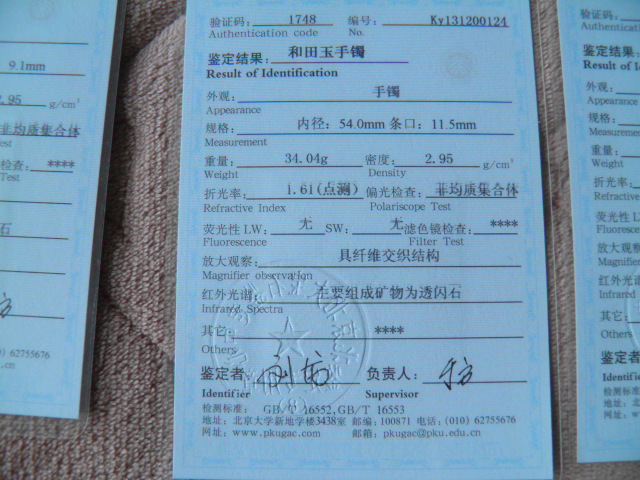 9.1mm
2.95 g/cm³
非均质集合体
检查: ****
Test
石
) 62755676
.cn
验证码: 1748 编号: Ky131200124
Authentication code No.
鉴定结果: 和田玉手镯
Result of Identification
外观: 手镯
Appearance
规格: 内径: 54.0mm 条口: 11.5mm
Measurement
重量: 34.04g 密度: 2.95 g/cm³
Weight Density
折光率: 1.61(点测) 偏光检查: 非均质集合体
Refractive Index Polariscope Test
荧光性 LW: 无 SW: 无 滤色镜检查: ****
Fluorescence Filter Test
放大观察: 具纤维交织结构
Magnifier observation
红外光谱: 主要组成矿物为透闪石
Infrared Spectra
其它: ****
Others
鉴定者: 负责人:
Identifier Supervisor
检测标准: GB/T 16552,GB/T 16553
地址: 北京大学新地学楼3438室 邮编: 100871 电话: (010) 62755676
网址: www.pkugac.com 邮箱: pkugac@pku.edu.cn
验证码:
Authentication
鉴定结果
Result of Id
外观:
Appearance
规格:
Measurement
重量:
Weight
折光率:
Refractive
荧光性 L
Fluorescen
放大观察
Magnifier
红外光谱
Infrared
其它:
Others
鉴定者
Identif
检测标准
地址: 北
网址: w